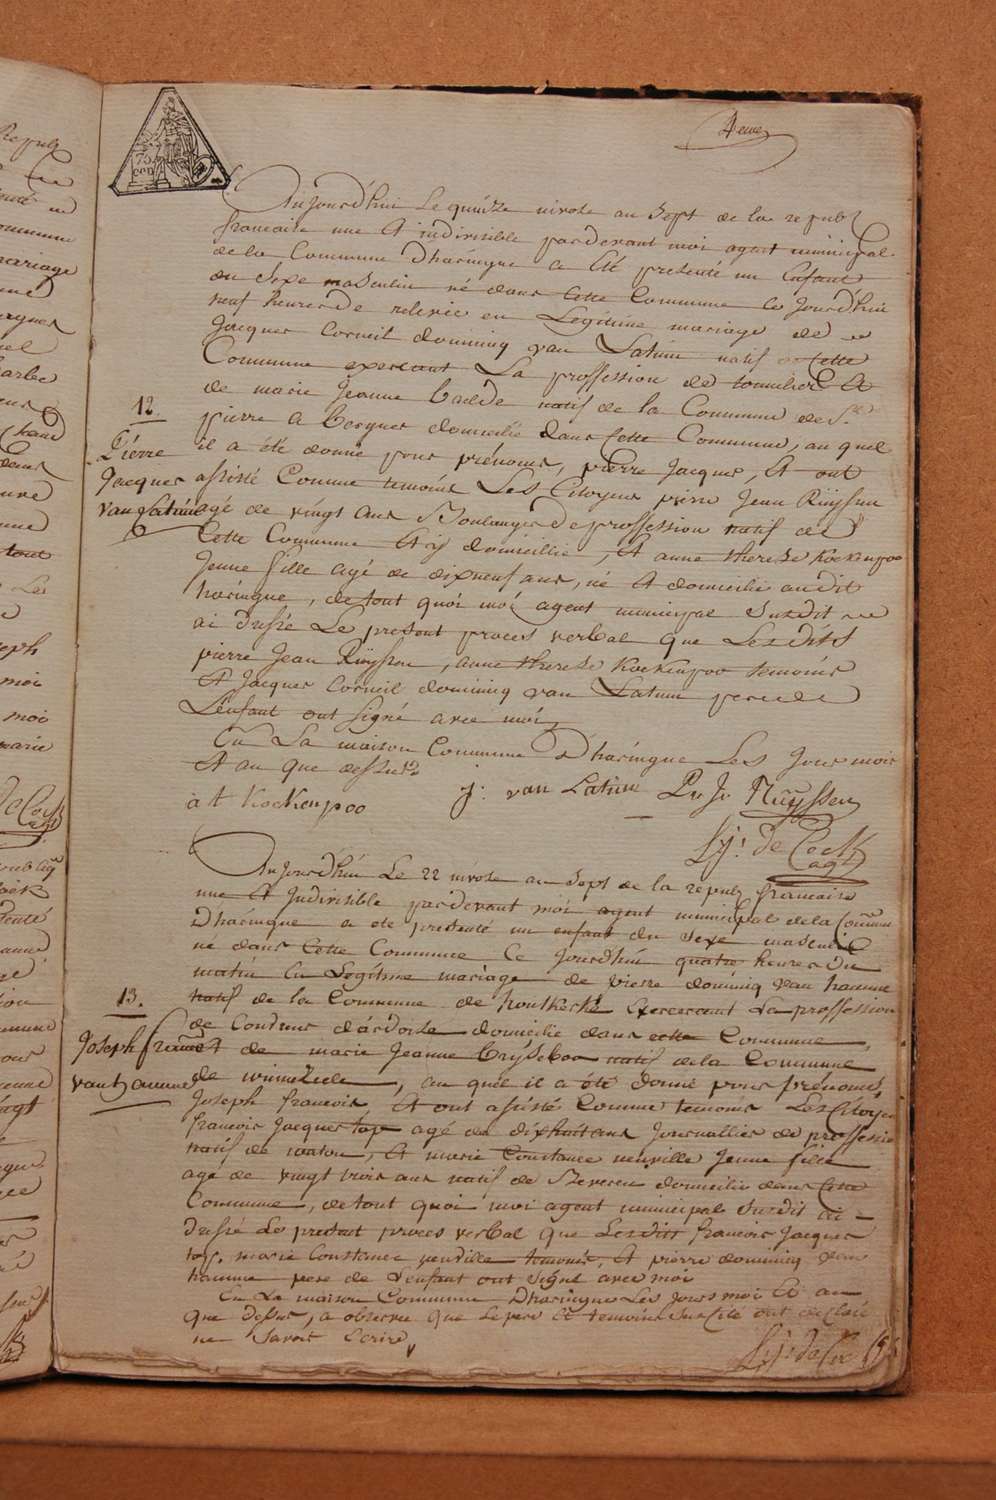 4eme
75
cen
Aujourd'hui le quinze nivose an Sept de la republ
francaise une Et indivisible pardevant moi agent municipal
de la Commune D'haringue a Eté presenté un Enfant
du Sexe masculin né dans Cette Commune Ce Jourd'hui
neuf heures de relevée en Legitime mariage de
Jacques Corneil dominiq van Latum natif de Cette
Commune exercant La proffession de tonnelier Et
de marie Jeanne Baelde natif de la Commune de St
pierre a Bergues domicilié dans Cette Commune, au quel
il a été donné pour prénoms, pierre Jacques, Et ont
assisté Comme temoins Les Citoyens pierre Jean Ruyssen
agé de vingt ans Boulanger de proffession natif de
Cette Commune Et y domicilie, Et anne therese Kockenpoo
Jeune fille agé de dixneuf ans, né Et domicilié audit
haringue, de tout quoi moi agent municipal Susdit
ai dressé Le present proces verbal que Lesdits
pierre Jean Ruyssen, anne therese Kockenpoo temoins
Et Jacques Corneil dominiq van Latum pere de
L'enfant ont signé avec moi
En La maison Commune D'haringue Les Jour mois
Et an que dessus
12.
Pierre
Jacques
van Latum
a t Kockenpoo
J: van Latum
P. J. Ruyssen
Sy: de Cock
agt
Aujourd'hui Le 22 nivose an Sept de la republ francaise
une Et Indivisible pardevant moi agent municipal de la Commune
D'haringue a eté presenté un enfant du Sexe masculin
né dans Cette Commune Ce Jourd'hui quatre heures du
matin En Legitime mariage de pierre dominiq van hamme
natif de la Commune de houtkerke Exercant La proffession
de Couvreur d'ardoise domicilié dans cette Commune,
Et de marie Jeanne natif de la Commune
de winnezeele, au quel il a été donné pour prénoms,
Joseph francois, Et ont assisté Comme temoins Les Citoyens
francois Jacques top agé de dixhuit ans Journallier de proffession
natif de watou, Et marie Constance neuville Jeune fille
agé de vingt trois ans natif de Beveren domicilié dans Cette
Commune, de tout quoi moi agent municipal Susdit ai
dressé Le present proces verbal que Lesdits francois Jacques
top, marie Constance neuville temoins, Et pierre dominiq van
hamme pere de L'enfant ont signé avec moi
En La maison Commune D'haringue Les Jours moi Et an
que dessus, a observé que Le pere Et temoins Susdité ont declaré
ne Savoir Ecrire
13.
Joseph francois
van hamme
Sy: de Cock